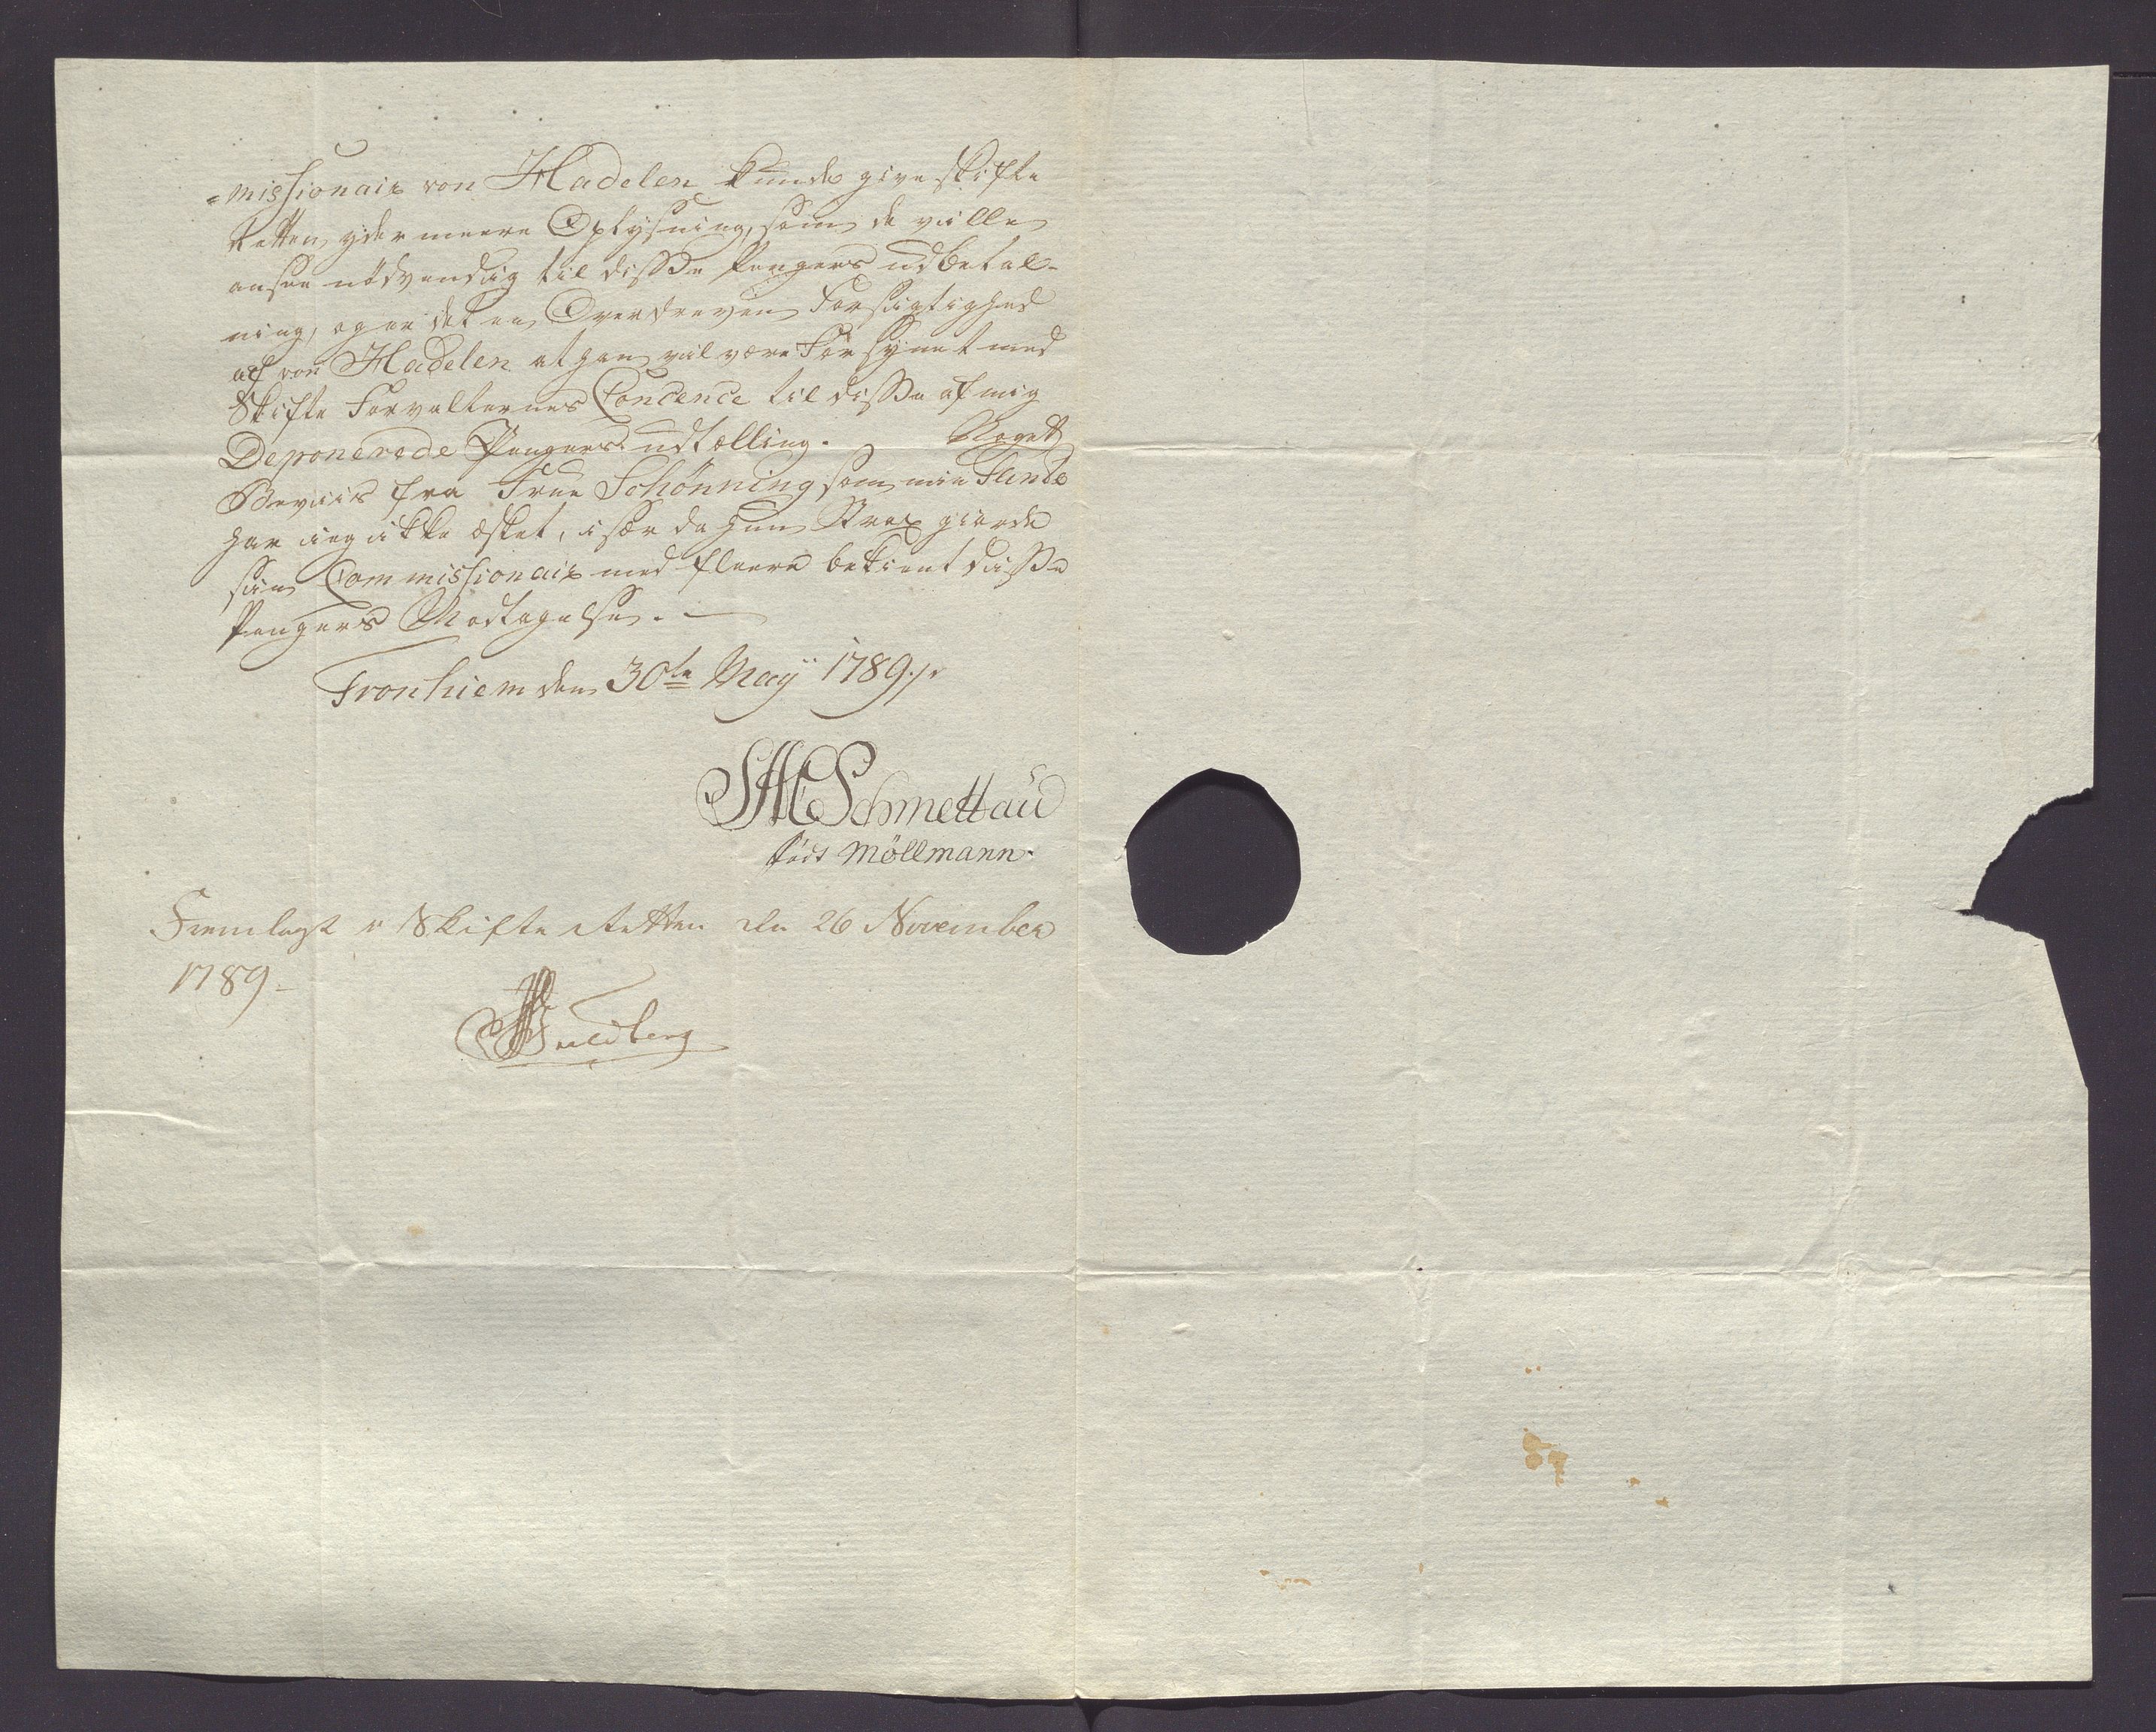 =missionair von Hadelen kunde give skifte
Retten ydermeere Oplysning, som de ville
ansee nödvendig til disse Penges udbetal-
ning, og er det en Overdreven Forsigtighed
af von Hadelen at han vil være Forsynet med
Skifte Forvalternes Concence til disse af mig
Deponerede Penges udtælling. Noget
Beviis fra Frue Schønning som min
har ieg ikke æsket, i sær da hun Strax giorde
sin Commissionair med fleere bekient disse
Pengers Modtagelse. —
Tronhiem den 30te Maÿ 1789./.
Schmettau
födt Möllmann.
Fremlagt i Skifte Retten den 26 November
1789-
Guldberg